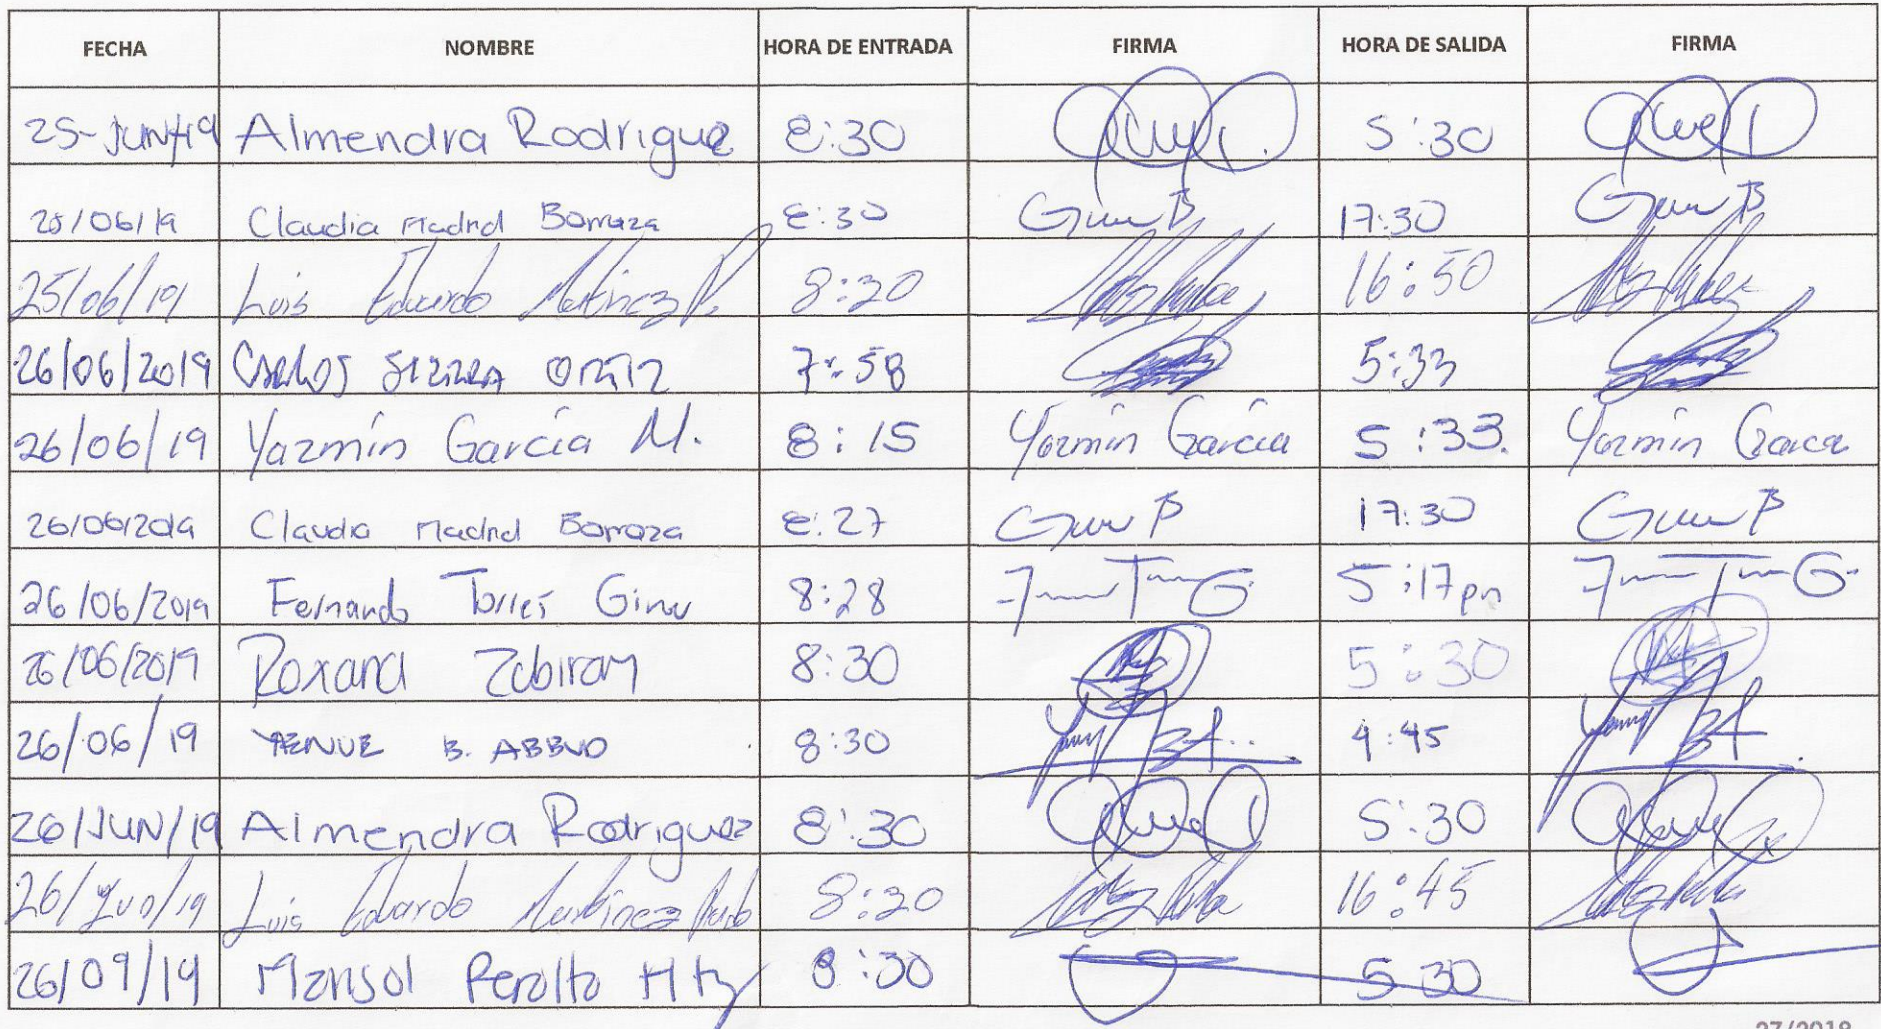 FECHA NOMBRE HORA DE ENTRADA FIRMA HORA DE SALIDA FIRMA
25-JUN/19 Almendra Rodriguez 8:30 5:30
25/06/19 Claudia Madrid Borraza 8:30 17:30
25/06/19 Luis Eduardo Martinez P. 8:20 16:50
26/06/2019 Carlos Sierra Ortiz 7:58 5:33
26/06/19 Yazmín García M. 8:15 Yazmín García 5:33. Yazmín García
26/06/2019 Claudia Madrid Borraza 8:27 17:30
26/06/2019 Fernando Torres 8:28 5:17pm
26/06/2019 Roxana 8:30 5:30
26/06/19 B. ABBUD 8:30 4:45
26/JUN/19 Almendra Rodriguez 8:30 5:30
26/Jun/19 Luis Eduardo Martinez 8:20 16:45
26/09/19 Marisol Peralta Mtz 8:30 5:30
27/2019